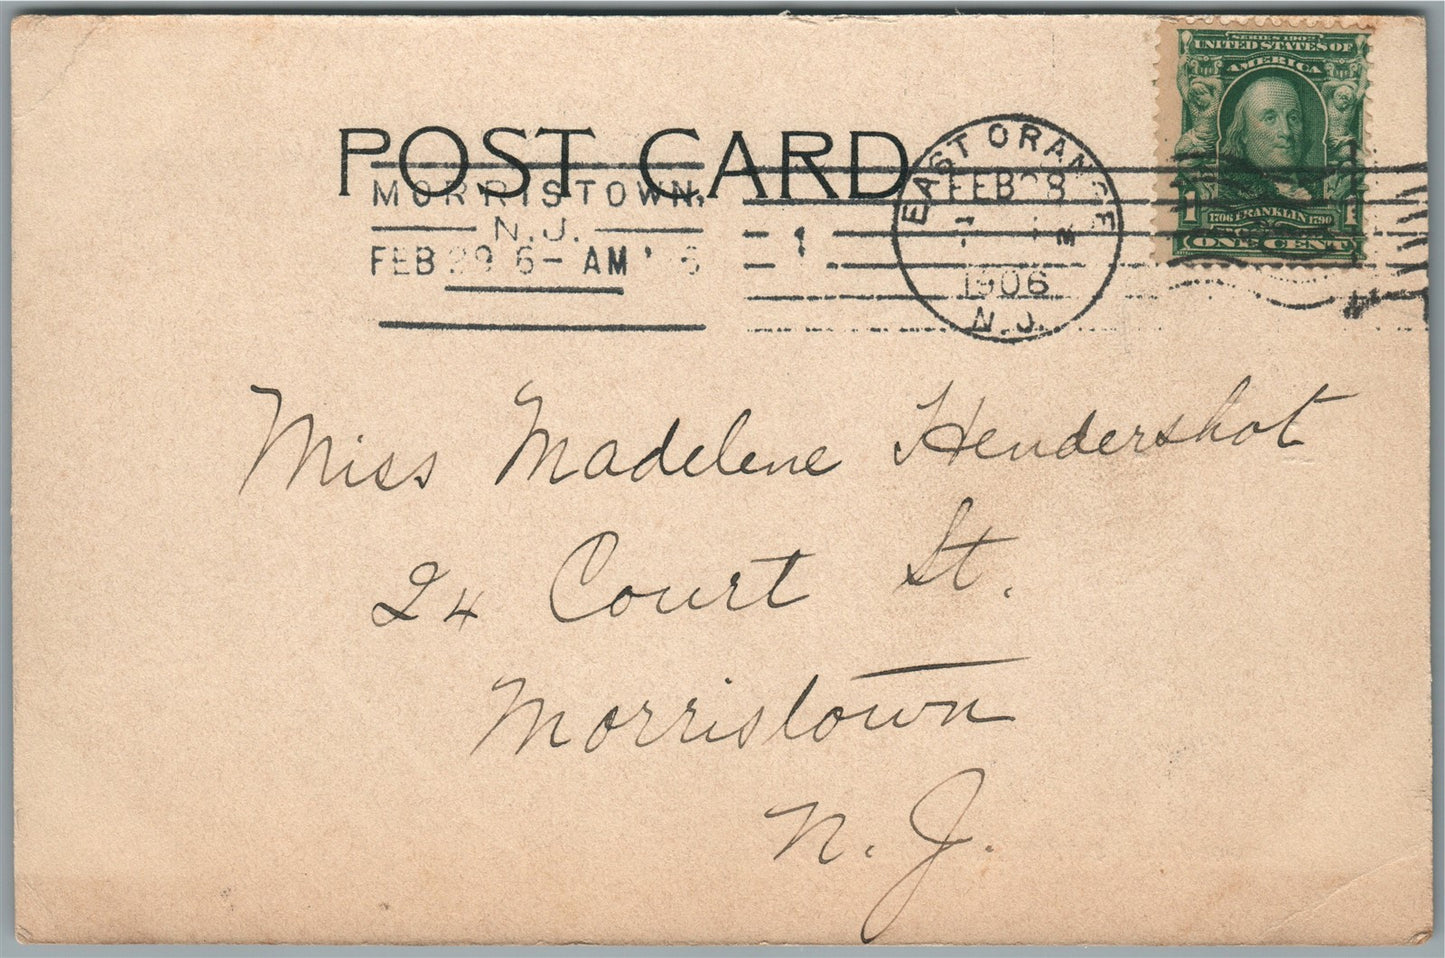 SERIES 1902
UNITED STATES OF
AMERICA
1706 FRANKLIN 1790
1 1
ONE CENT
POST CARD
EAST ORANGE
FEB 28
1 M
1906
N.J.
1
MORRISTOWN,
N.J.
FEB 29 6- AM '06
Miss Madelene Hendershot
24 Court St.
Morristown
N. J.